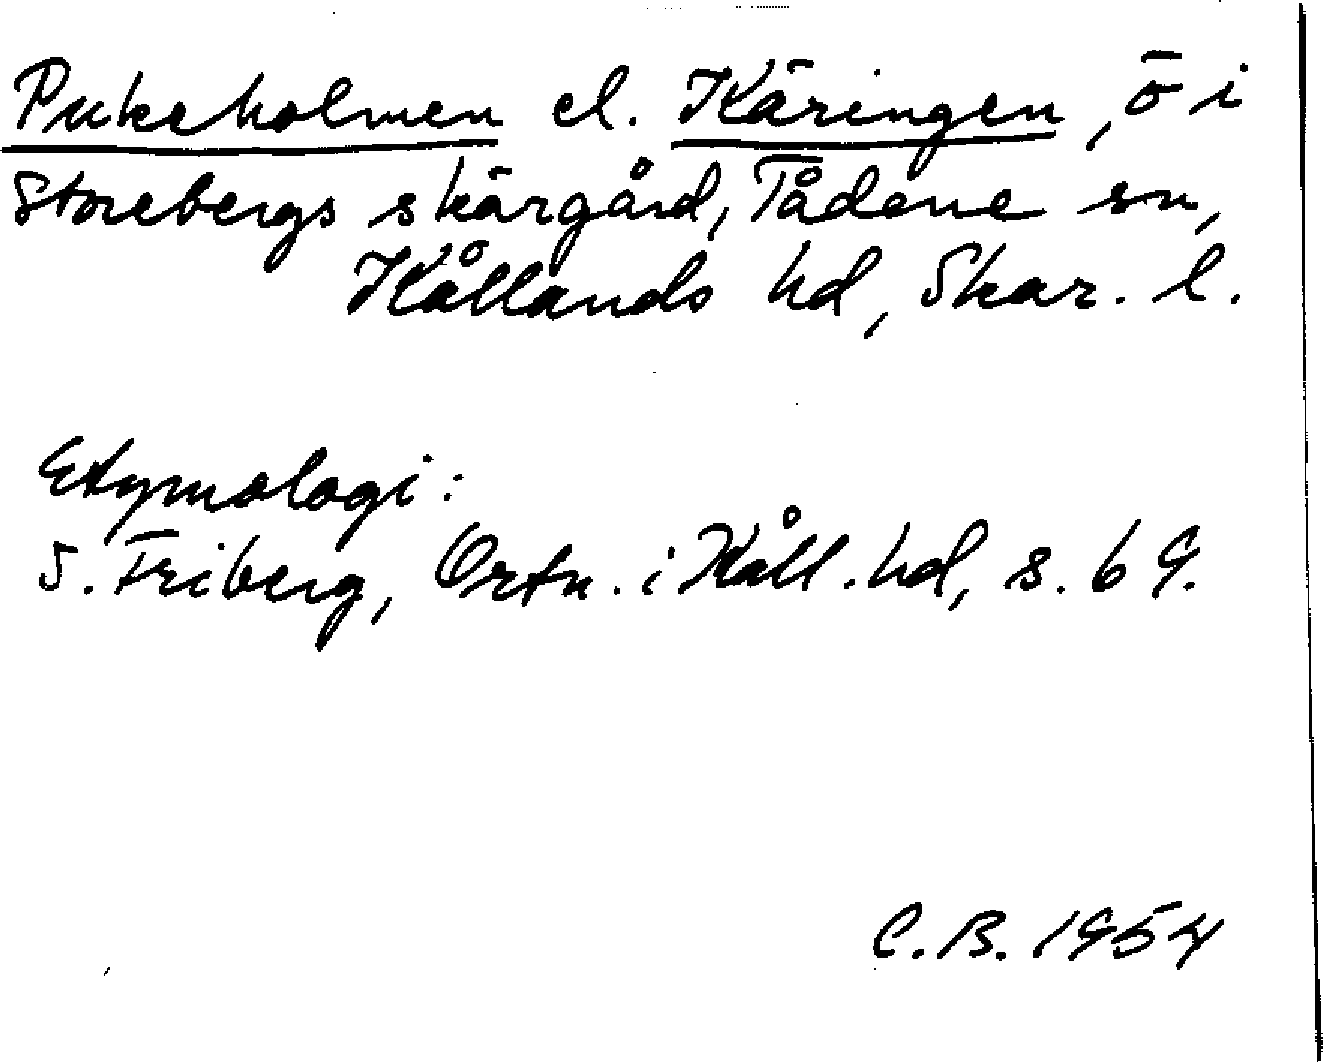 Pukeholmen el. Käringen, ö i
Storebergs skärgård, Tådene sn,
Kållands hd, Skar. l.
Etymologi:
S. Friberg, Ortn. i Kåll. hd, s. 69.
C. B. 1954